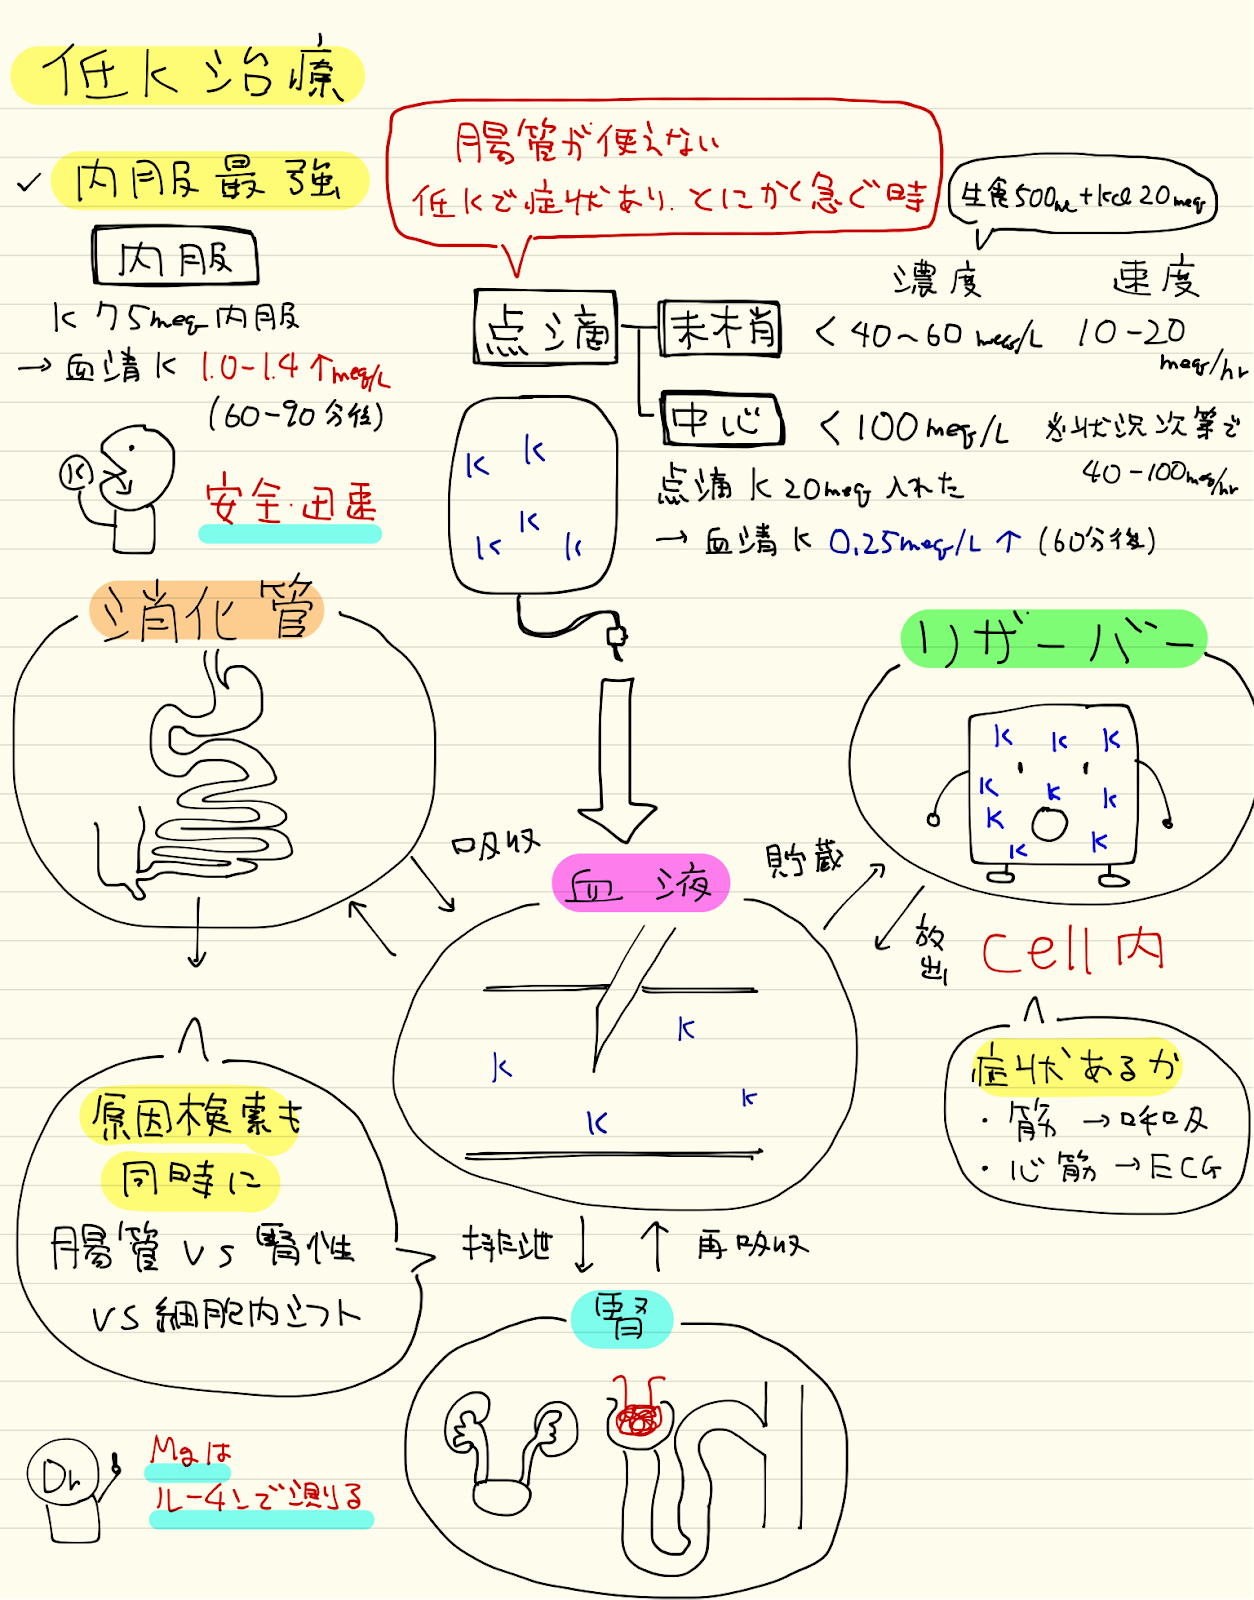 低K治療
✓ 内服最強
内服
K 75meq内服
→ 血清K 1.0-1.4↑meq/L
(60-90分後)
K
安全・迅速
腸管が使えない
低Kで症状あり、とにかく急ぐ時
生食500ml+KCl 20meq
濃度 速度
点滴
末梢 <40〜60meq/L 10-20meq/hr
中心 <100meq/L ※状況次第で
40-100meq/hr
点滴K 20meq入れた
→ 血清K 0.25meq/L↑ (60分後)
K K
K
K K
消化管
リザーバー
K K K
K K K
K
K K
吸収
貯蔵
放出
cell内
血液
K
K
K
K
症状あるか
・筋→呼吸
・心筋→ECG
原因検索も
同時に
腸管 vs 腎性
vs 細胞内シフト
排泄
再吸収
腎
Dr
Mgは
ルーチンで測る